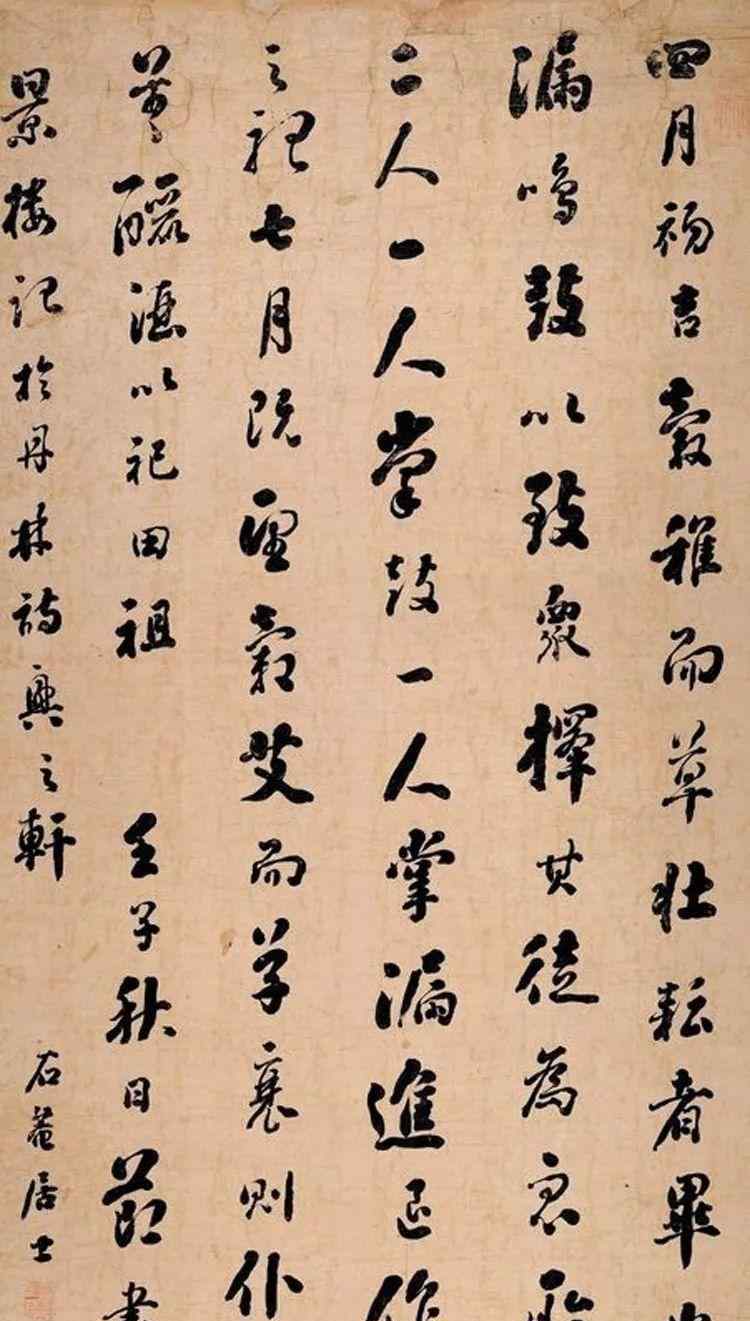 四月初吉穀稚而草壯耘者畢出
漏鳴鼓以致眾擇其徒為眾所
二人一人掌鼓一人掌漏進退作
之祀七月既望穀艾而草衰則仆
羊釃酒以祀田祖 壬子秋日節書
景樓記於丹林詩興之軒 石菴居士